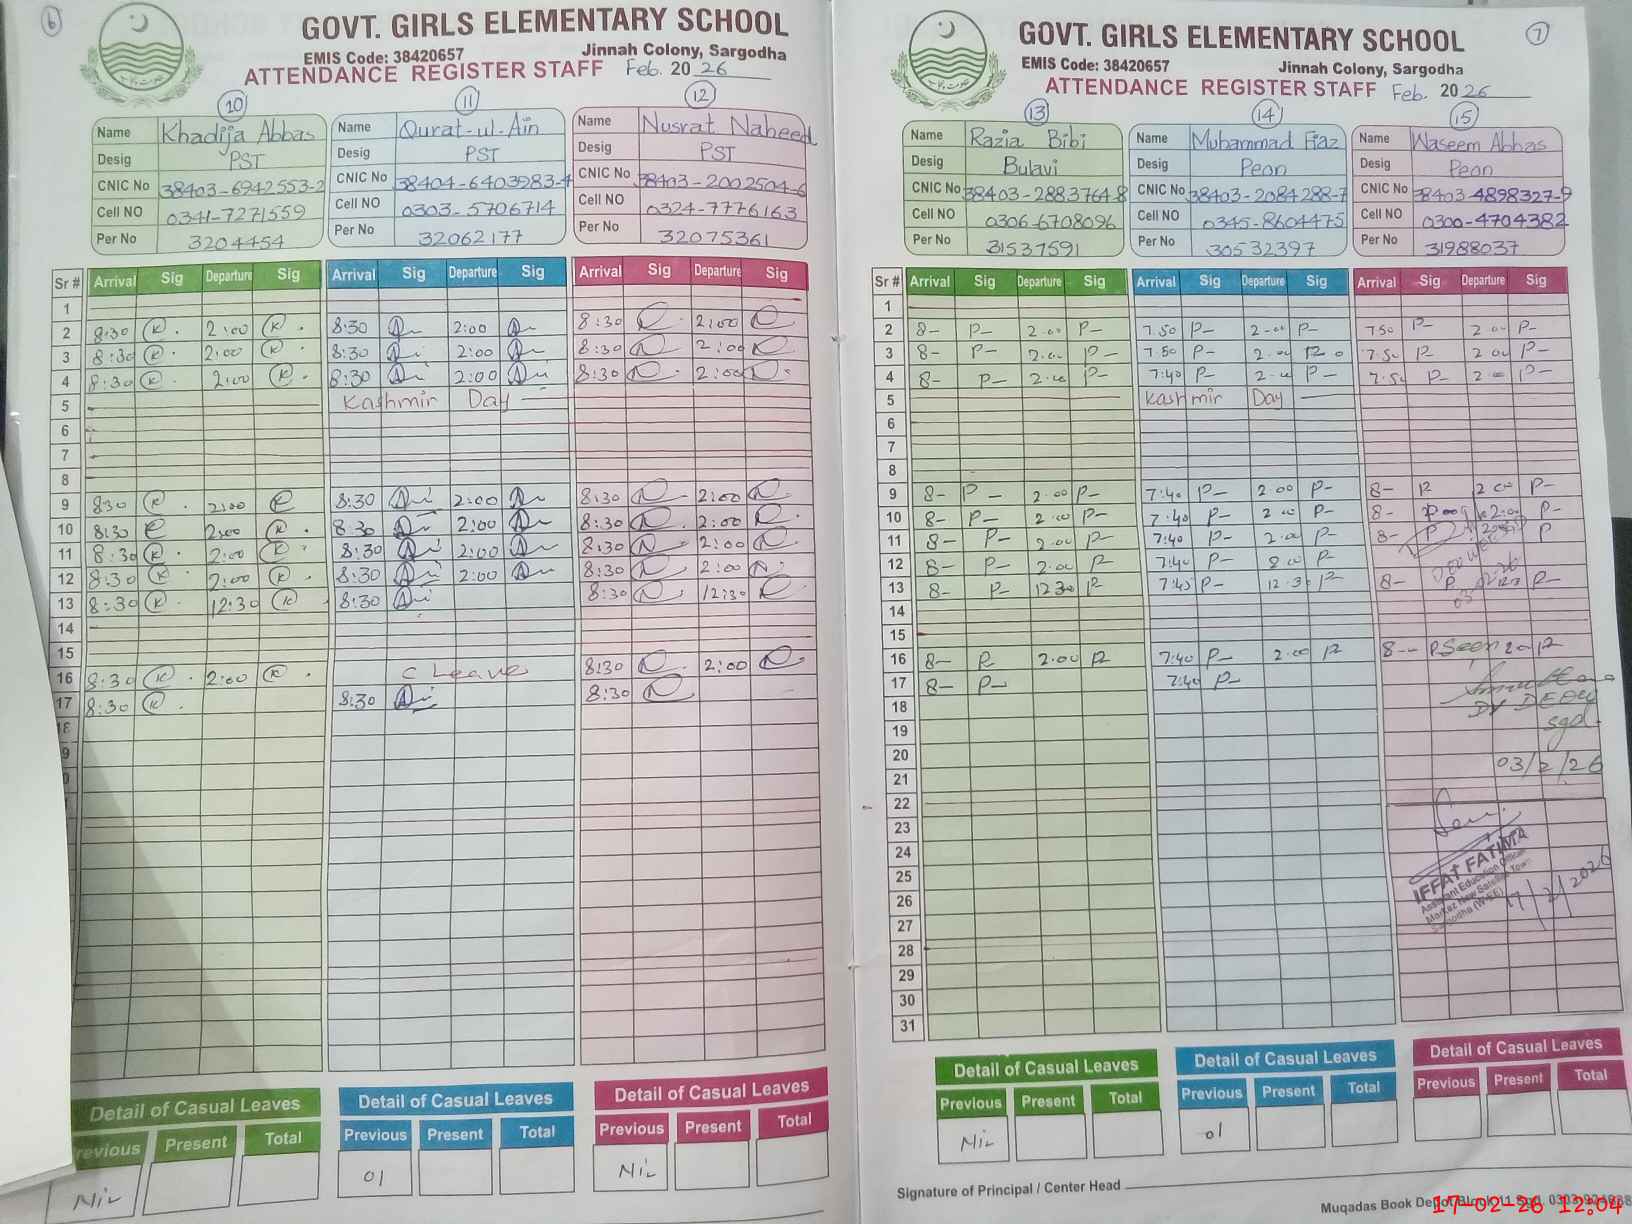 6
GOVT. GIRLS ELEMENTARY SCHOOL
EMIS Code: 38420657
Jinnah Colony, Sargodha
ATTENDANCE REGISTER STAFF Feb. 2026
10 11 12
Name Khadija Abbas Name Qurat-ul-Ain Name Nusrat Naheed
Desig PST Desig PST Desig PST
CNIC No 38403-6942553-2 CNIC No 38404-6403983-4 CNIC No 38403-2002504-6
Cell NO 0341-7271559 Cell NO 0303-5706714 Cell NO 0324-7776163
Per No 3204454 Per No 32062177 Per No 32075361
Sr # Arrival Sig Departure Sig Arrival Sig Departure Sig Arrival Sig Departure Sig
1
2 8:30 K 2:00 K 8:30 2:00 8:30 2:00
3 8:30 K 2:00 K 8:30 2:00 8:30 2:00
4 8:30 K 2:00 K 8:30 2:00 8:30 2:00
5 Kashmir Day
6
7
8
9 830 K 2:00 8:30 2:00 8:30 2:00
10 8:30 2:00 K 8:30 2:00 8:30 2:00
11 8:30 K 2:00 K 8:30 2:00 8:30 2:00
12 8:30 K 2:00 K 8:30 2:00 8:30 2:00
13 8:30 K 12:30 K 8:30 8:30 12:30
14
15
16 8:30 K 2:00 K C Leave 8:30 2:00
17 8:30 K 8:30 8:30
18
9
0
Detail of Casual Leaves Detail of Casual Leaves Detail of Casual Leaves
revious Present Total Previous Present Total Previous Present Total
Nil 01 Nil
7
GOVT. GIRLS ELEMENTARY SCHOOL
EMIS Code: 38420657
Jinnah Colony, Sargodha
ATTENDANCE REGISTER STAFF Feb. 2026
13 14 15
Name Razia Bibi Name Muhammad Fiaz Name Waseem Abbas
Desig Bulavi Desig Peon Desig Peon
CNIC No 38403-2883764-8 CNIC No 38403-2084288-7 CNIC No 38403-4898327-9
Cell NO 0306-6708096 Cell NO 0345-8604475 Cell NO 0300-4704382
Per No 31537591 Per No 30532397 Per No 31988037
Sr # Arrival Sig Departure Sig Arrival Sig Departure Sig Arrival Sig Departure Sig
1
2 8- P- 2.00 P- 7.50 P- 2.00 P- 750 P- 2.00 P-
3 8- P- 2.00 P- 7.50 P- 2.00 P 7.50 P 2.00 P-
4 8- P- 2.00 P- 7:40 P- 2.00 P- 7.50 P- 2.00 P-
5 Kashmir Day
6
7
8
9 8- P- 2.00 P- 7:40 P- 2.00 P- 8- P 2.00 P-
10 8- P- 2.00 P- 7:40 P- 2.00 P- 8- 2.00 P-
11 8- P- 2.00 P- 7:40 P- 2.00 P- 8- P P
12 8- P- 2.00 P 7:40 P- 2.00 P
13 8- P- 1230 P 7:40 P- 12.30 P 8- P P-
14
15
16 8- P 2.00 P 7:40 P- 2.00 P 8- P Seen P
17 8- P- 7:40 P-
18
DY DEO
19
sgd.
20
03/2/26
21
22
23
24
IFFAT FATIMA
25
Assistant Education Officer
26
Markaz New Satellite Town
Sargodha (W-EE)
17/2/2026
27
28
29
30
31
Detail of Casual Leaves Detail of Casual Leaves Detail of Casual Leaves
Previous Present Total Previous Present Total Previous Present Total
Nil 01
Signature of Principal / Center Head
Muqadas Book Depot Block 11 Sgd.
17-02-26 12:04